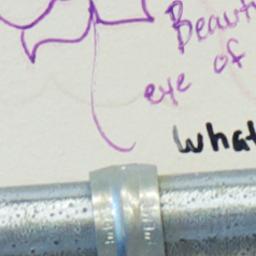 Beauti
eye of
what